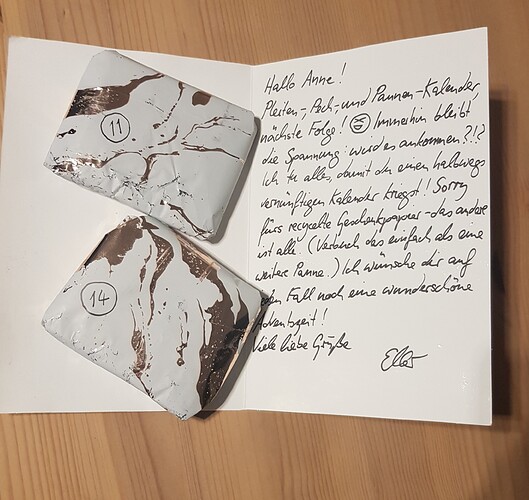 11
14
Hallo Anne!
Pleiten-, Pech- und Pannen-Kalender,
nächste Folge! Immerhin bleibt
die Spannung: wird es ankommen?!?
Ich tu alles, damit du einen halbwegs
vernünftigen Kalender kriegst! Sorry
fürs recycelte Geschenkpapier - das andere
ist alle. (Verbuch das einfach als eine
weitere Panne.) Ich wünsche dir auf
Fall noch eine wunderschöne
Adventszeit!
Viele liebe Grüße